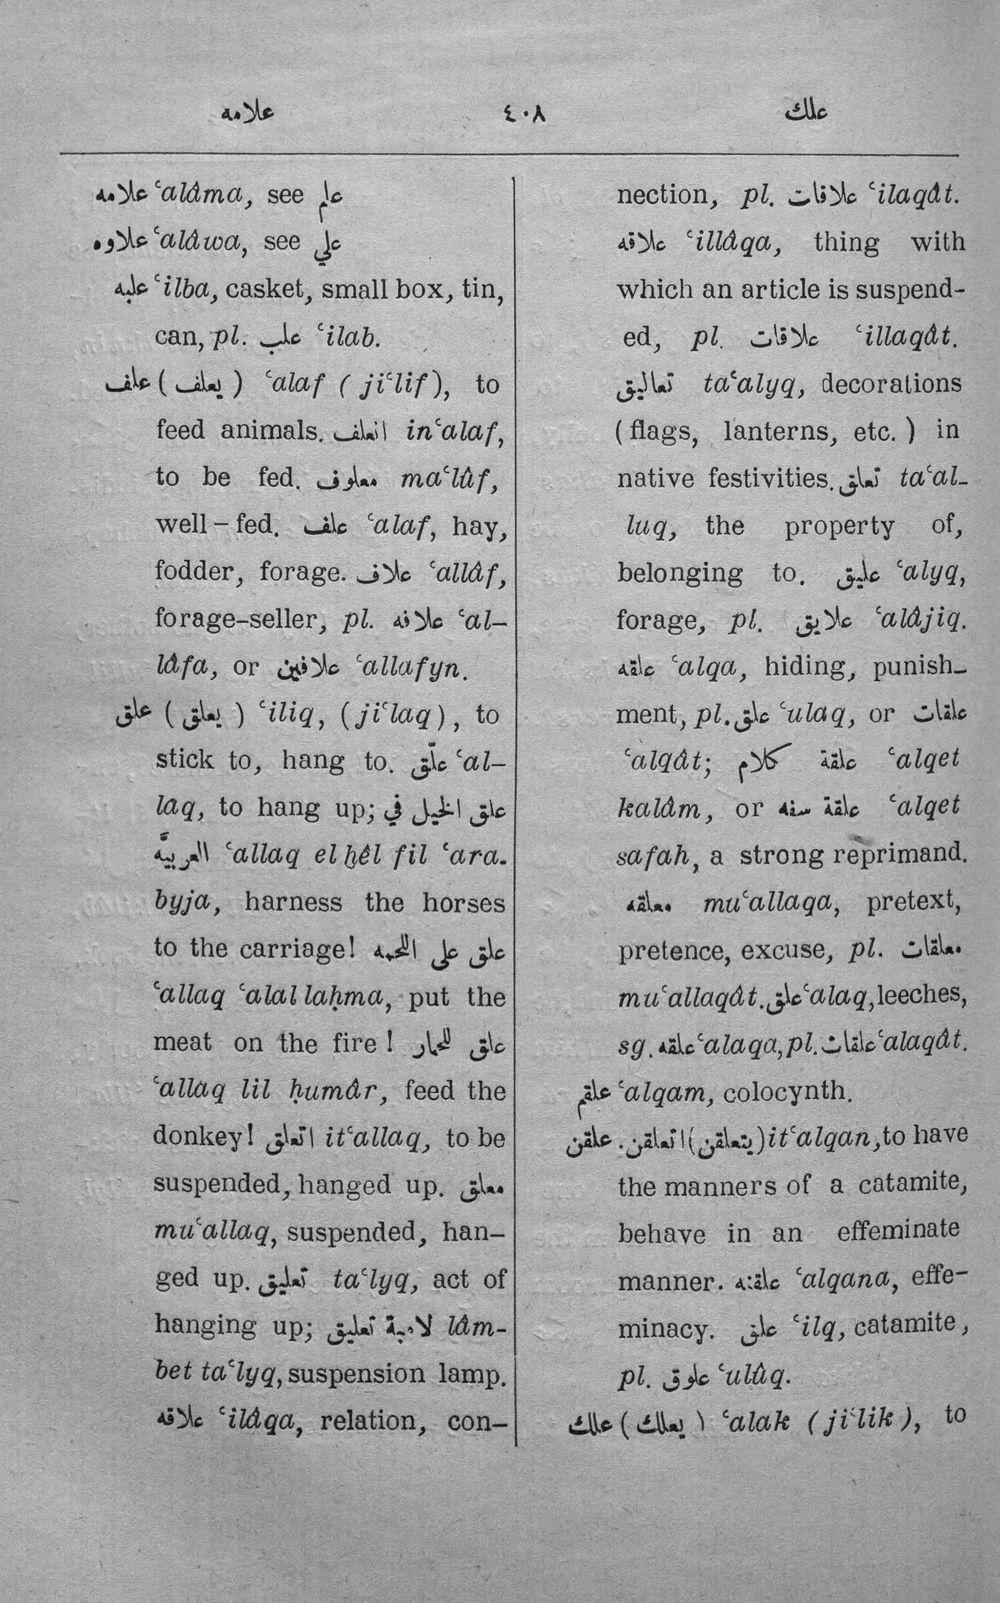 علامه ٤٠٨ علك
علامه ʿalâma, see علم
علاوه ʿalâwa, see علي
علبه ʿilba, casket, small box, tin,
can, pl. علب ʿilab.
علف (يعلف) ʿalaf (jiʿlif), to
feed animals. انعلف inʿalaf,
to be fed. معلوف maʿlûf,
well-fed. علف ʿalaf, hay,
fodder, forage. علاف ʿallâf,
forage-seller, pl. علافه ʿal-
lâfa, or علافين ʿallafyn.
علق (يعلق) ʿiliq, (jiʿlaq), to
stick to, hang to. علّق ʿal-
laq, to hang up; علق الخيل في
العربيّه ʿallaq el ḫêl fil ʿara-
byja, harness the horses
to the carriage! علق على اللحمه
ʿallaq ʿalal laḥma, put the
meat on the fire! علق للحمار
ʿallaq lil ḥumâr, feed the
donkey! اتعلق itʿallaq, to be
suspended, hanged up. معلق
muʿallaq, suspended, han-
ged up. تعليق taʿlyq, act of
hanging up; لامبة تعليق lâm-
bet taʿlyq, suspension lamp.
علاقه ʿilâqa, relation, con-
nection, pl. علاقات ʿilaqât.
علاقه ʿillâqa, thing with
which an article is suspend-
ed, pl. علاقات ʿillaqât.
تعاليق taʿalyq, decorations
(flags, lanterns, etc.) in
native festivities. تعلق taʿal-
luq, the property of,
belonging to. عليق ʿalyq,
forage, pl. علايق ʿalâjiq.
علقه ʿalqa, hiding, punish-
ment, pl. علق ʿulaq, or علقات
ʿalqât; علقة كلام ʿalqet
kalâm, or علقة سفه ʿalqet
safah, a strong reprimand.
معلقه muʿallaqa, pretext,
pretence, excuse, pl. معلقات
muʿallaqât. علق ʿalaq, leeches,
sg. علقه ʿalaqa, pl. علقات ʿalaqât.
علقم ʿalqam, colocynth.
علقن. اتعلقن (يتعلقن) itʿalqan, to have
the manners of a catamite,
behave in an effeminate
manner. علقنه ʿalqana, effe-
minacy. علق ʿilq, catamite,
pl. علوق ʿulûq.
علك (يعلك) ʿalak (jiʿlik), to